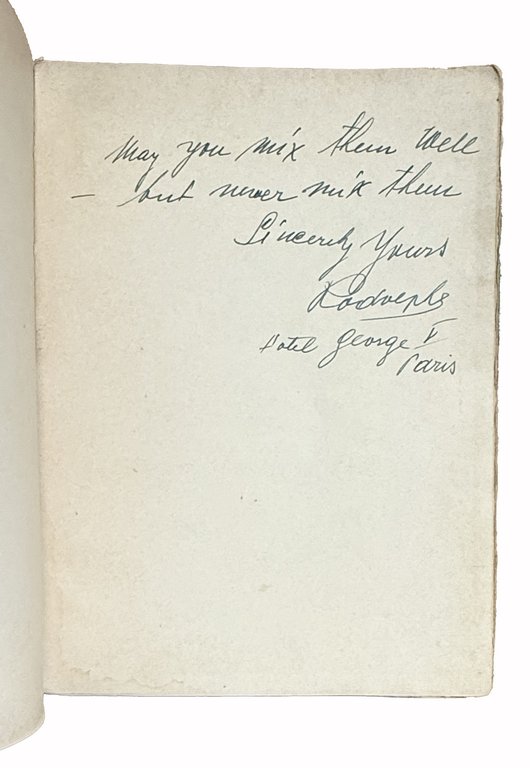 May you mix them well
— but never mix them
Sincerely Yours
Rodolphe
Hotel George V
Paris